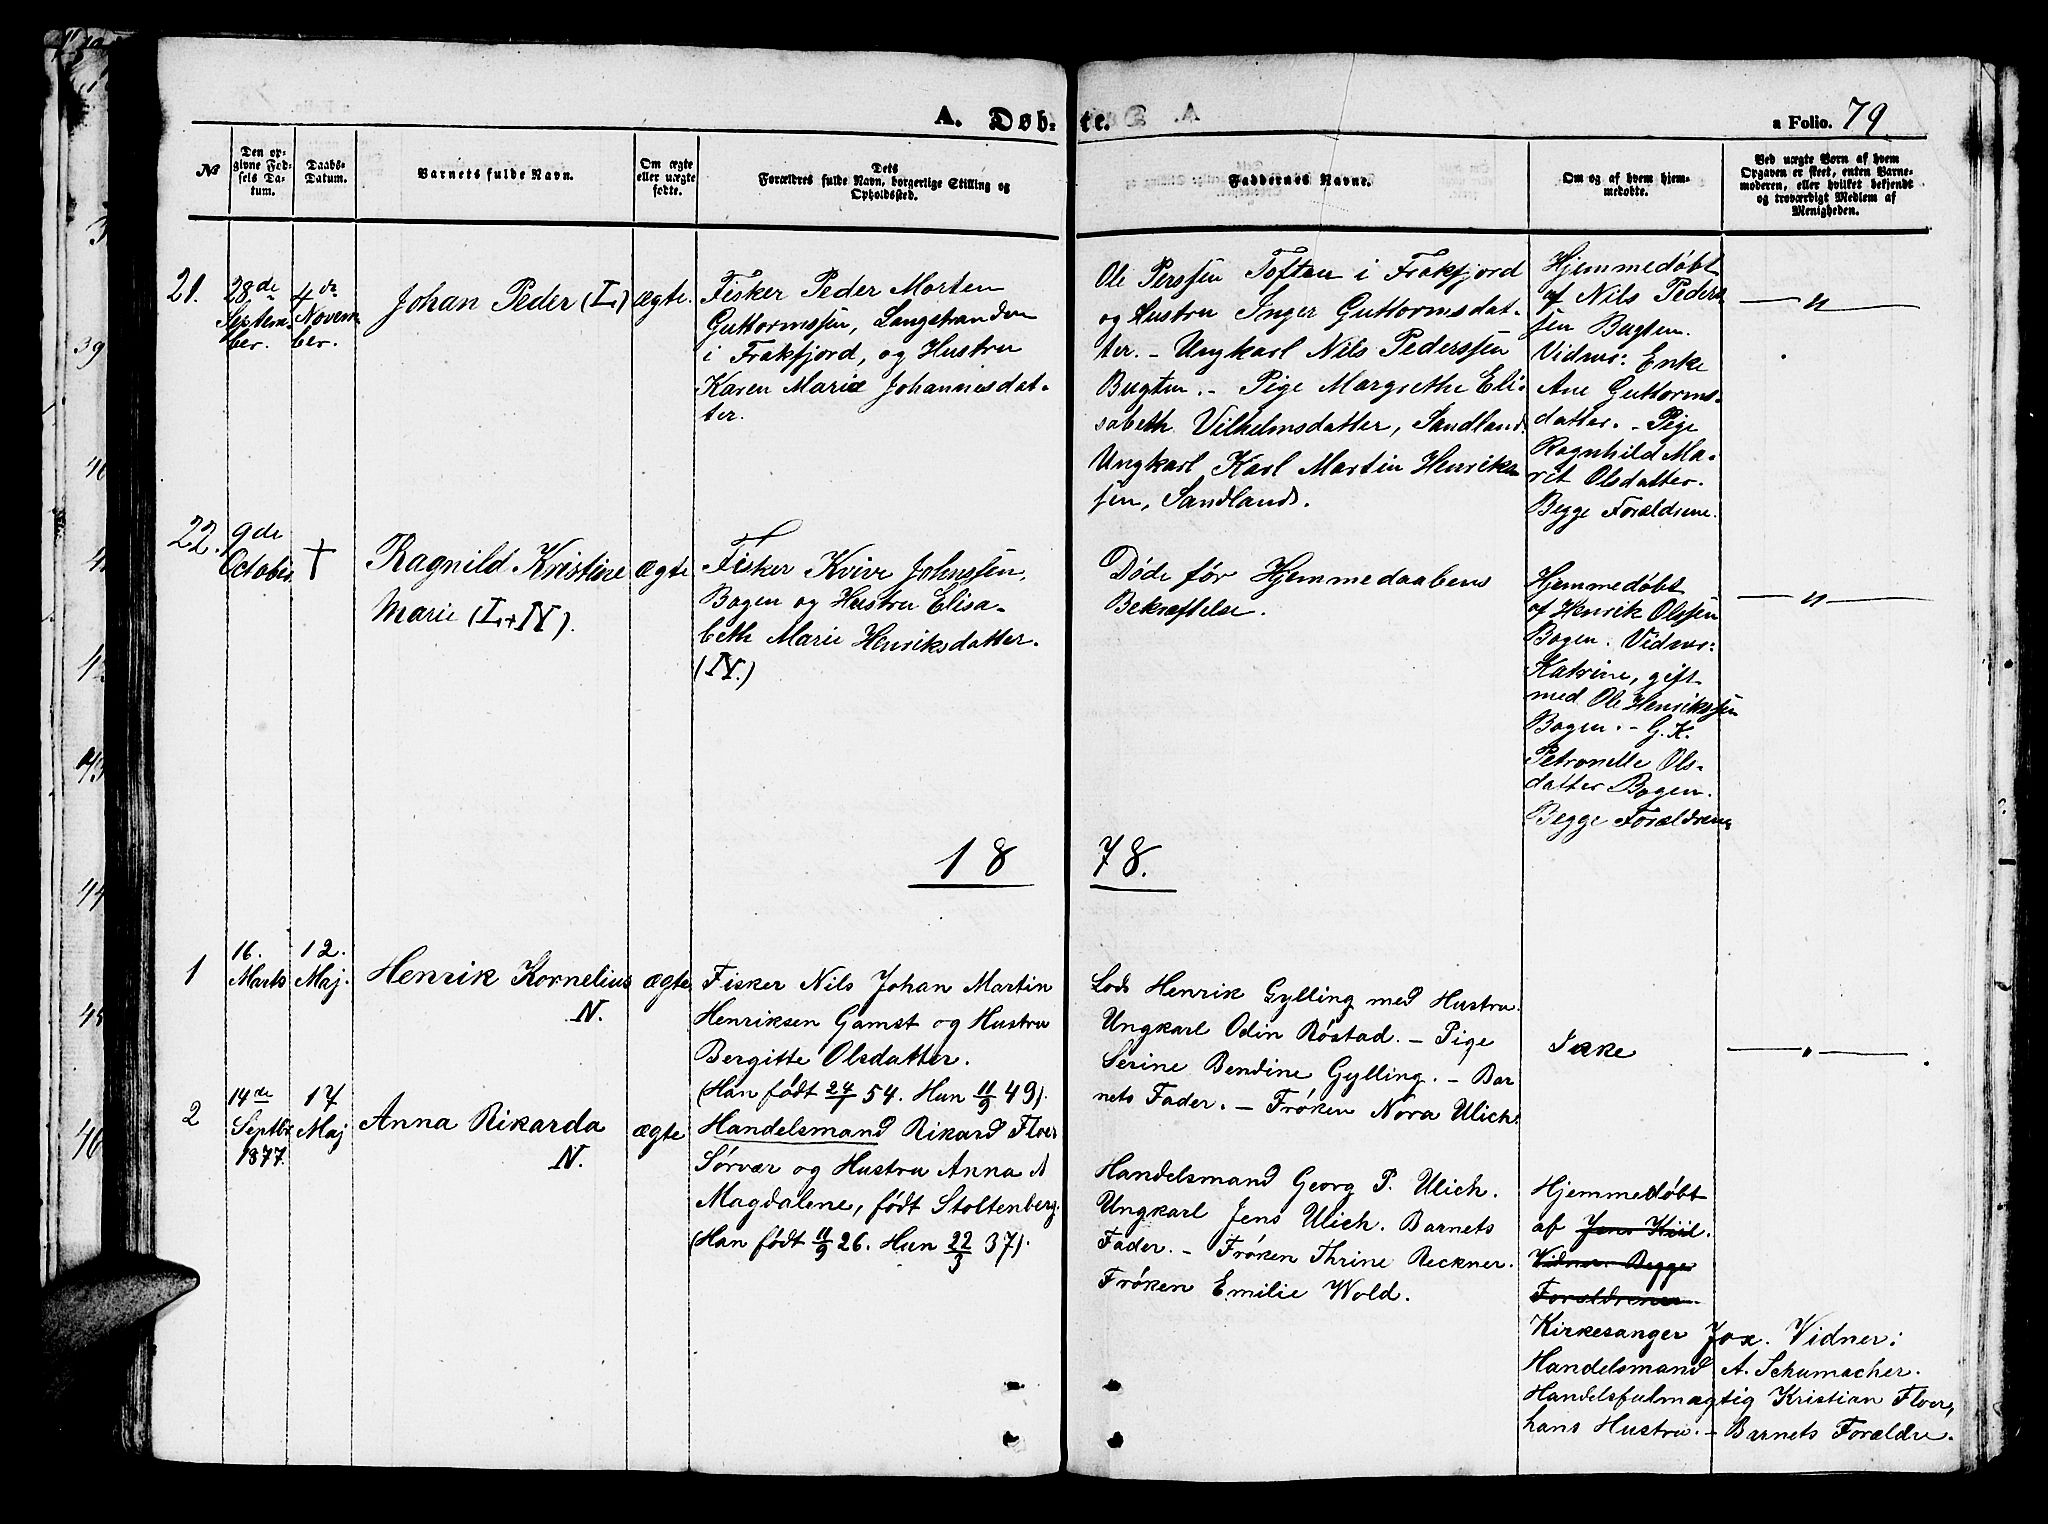 A. Døb-
te.
a Folio. 79
№
Den op-
givne Fød-
sels Da-
tum.
Daabs-
Datum.
Barnets fulde Navn.
Om ægte
eller uægte
fødte.
Dets
Forældres fulde Navn, borgerlige Stilling og
Opholdssted.
Faddernes Navne.
Om og af hvem hjem-
medøbte.
Ved uægte Børn af hvem
Opgaven er skeet, enten Barne-
moderen, eller hvilket bekjendt
og troværdigt Medlem af
Menigheden.
21.
28de
Septem-
ber.
4de
Novem-
ber.
Johan Peder (L)
ægte.
Fisker Peder Morten
Guttormssen, Langstranden
i Frakfjord, og Hustru
Karen Marie Johannesdat-
ter.
Ole Perssen Toften i Frakfjord
og Hustru Inger Guttormsdat-
ter. - Ungkarl Nils Pederssen
Bugten. - Pige Margrethe Eli-
sabeth Vilhelmsdatter, Sandland.
Ungkarl Karl Martin Henriks-
sen, Sandland.
Hjemmedøbt
af Nils Peders-
sen Bugten.
Vidner: Enke
Ane Guttorms-
datter. - Pige
Ragnhild Ma-
rit Olsdatter.
Begge Forældrene.
— " —
22.
9de
October.
†
Ragnild Kristine
Marie (L+N).
ægte
Fisker Kvive Johnssen,
Bogen og Hustru Elisa-
beth Marie Henriksdatter.
(N.)
Døde før Hjemmedaabens
Bekræftelse.
Hjemmedøbt
af Henrik Olssen
Bogen. Vidner:
Katrine, gift
med Ole Henrikssen
Bogen. - G. K.
Petronelle Ols-
datter Bogen.
Begge Forældrene
— " —
18
78.
1
16.
Marts
12.
Maj.
Henrik Kornelius
N.
ægte
Fisker Nils Johan Martin
Henriksen Gamst og Hustru
Bergitte Olsdatter.
(Han født 24/7 54. Hun 11/9 49).
Lods Henrik Gylling med Hustru.
Ungkarl Odin Røstad. - Pige
Serine Bendine Gylling. - Bar
nets Fader. - Frøken Nora Ulich.
Ikke
— " —
2
14de
Septbr
1877.
17
Maj
Anna Rikarda
N.
ægte
Handelsmand Rikard Floer
Sørvær og Hustru Anna A
Magdalene, født Stoltenberg.
(Han født 11/9 26. Hun 22/3 37).
Handelsmand Georg P. Ulich.
Ungkarl Jens Ulich. Barnets
Fader. - Frøken Thrine Reckner.
Frøken Emilie Wold.
Hjemmedøbt
af Jens Kiil.
Vidner: Begge
Forældrene.
Kirkesanger Fox. Vidner:
Handelsmand A. Schumacher.
Handelsfulmægtig Kristian Floer,
hans Hustru. - Barnets Forældre.
39
40
44
45
46